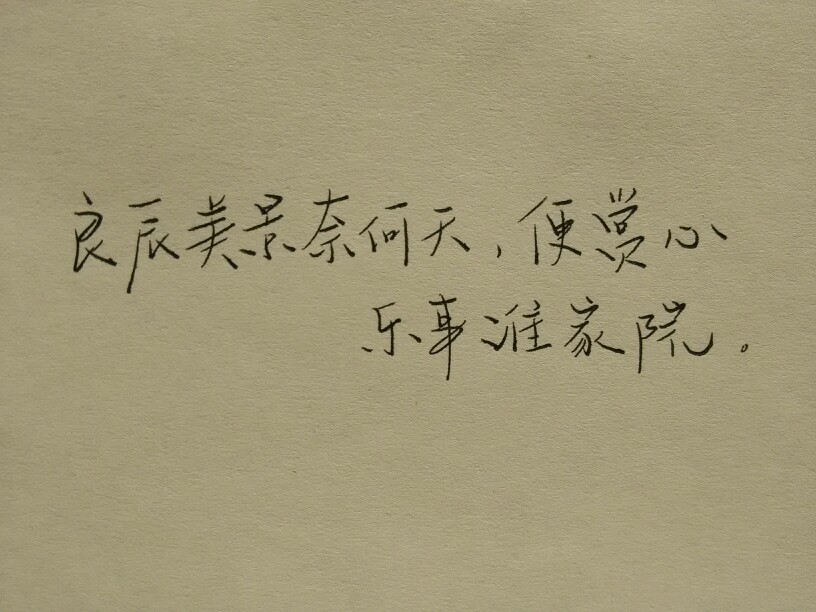 良辰美景奈何天，便赏心
乐事谁家院。